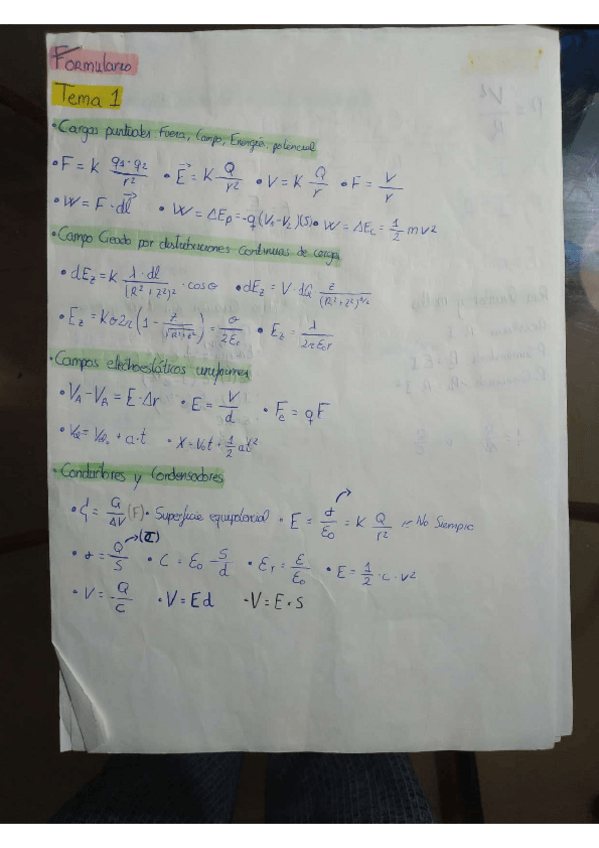 Formulario
Tema 1
• Cargas puntuales Fuerza, Campo, Energía, potencial
• F = K q1·q2/r² • E⃗ = K·Q/r² • V = K Q/r • F = V/r
• W = F·dl⃗ • W = ΔEp = -q(V1-V2)(J) • W = ΔEc = 1/2 mv²
• Campo Creado por distribuciones Continuas de carga
• dEz = K λ·dl/(R²+z²)² · cosθ • dEz = V·dQ z/(R²+z²)³/²
• Ez = Kσ2π(1 - z/√(R²+z²)) = σ/2Eε • Ez = λ/2πEεr
• Campos electroestáticos uniformes
• VA - VB = E·Δr • E = V/d • Fe = qF
• x = v0t + 1/2 at²
• Conductores y Condensadores
• C = Q/ΔV (F) • Superficie equipotencial • E = σ/ε0 = K Q/r² No Siempre
• σ = Q/S • C = ε0 S/d • εr = ε/ε0 • E = 1/2·c·v²
• V = Q/C • V = Ed • V = E·s